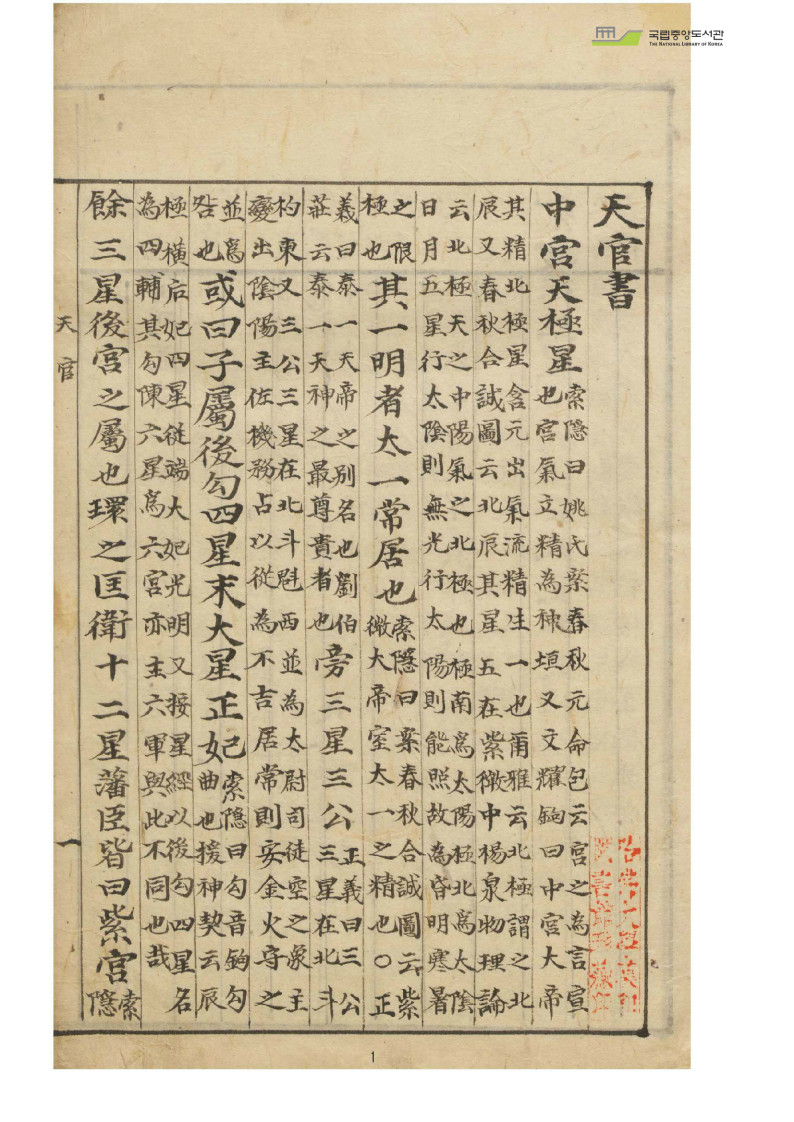 국립중앙도서관
THE NATIONAL LIBRARY OF KOREA
天官書
中宮天極星
索隱曰姚氏案春秋元命包云宮之為言宣
也宮氣立精為神垣又文耀鉤曰中宮大帝
其精北極星含元出氣流精生一也爾雅云北極謂之北
辰又春秋合誠圖云北辰其星五在紫微中楊泉物理論
云北極天之中陽氣之北極也極南爲太陽極北爲太陰
日月五星行太陰則無光行太陽則能照故為昏明寒暑
之限
極也
其一明者太一常居也
索隱曰案春秋合誠圖云紫
微大帝室太一之精也○正
義曰泰一天帝之別名也劉伯
莊云泰一天神之最尊貴者也
旁三星三公
正義曰三公
三星在北斗
杓東又三公三星在北斗魁西並為太尉司徒空之象主
變出陰陽主佐機務占以從為不吉居常則安金火守之
並爲
咎也
或曰子屬後勾四星末大星正妃
索隱曰勾音鉤勾
曲也援神契云辰
極橫后妃四星從端大妃光明又按星經以後勾四星名
為四輔其勾陳六星爲六宮亦主六軍與此不同也哉
餘三星後宮之屬也環之匡衛十二星藩臣皆曰紫宮
索
隱
天官
一
1